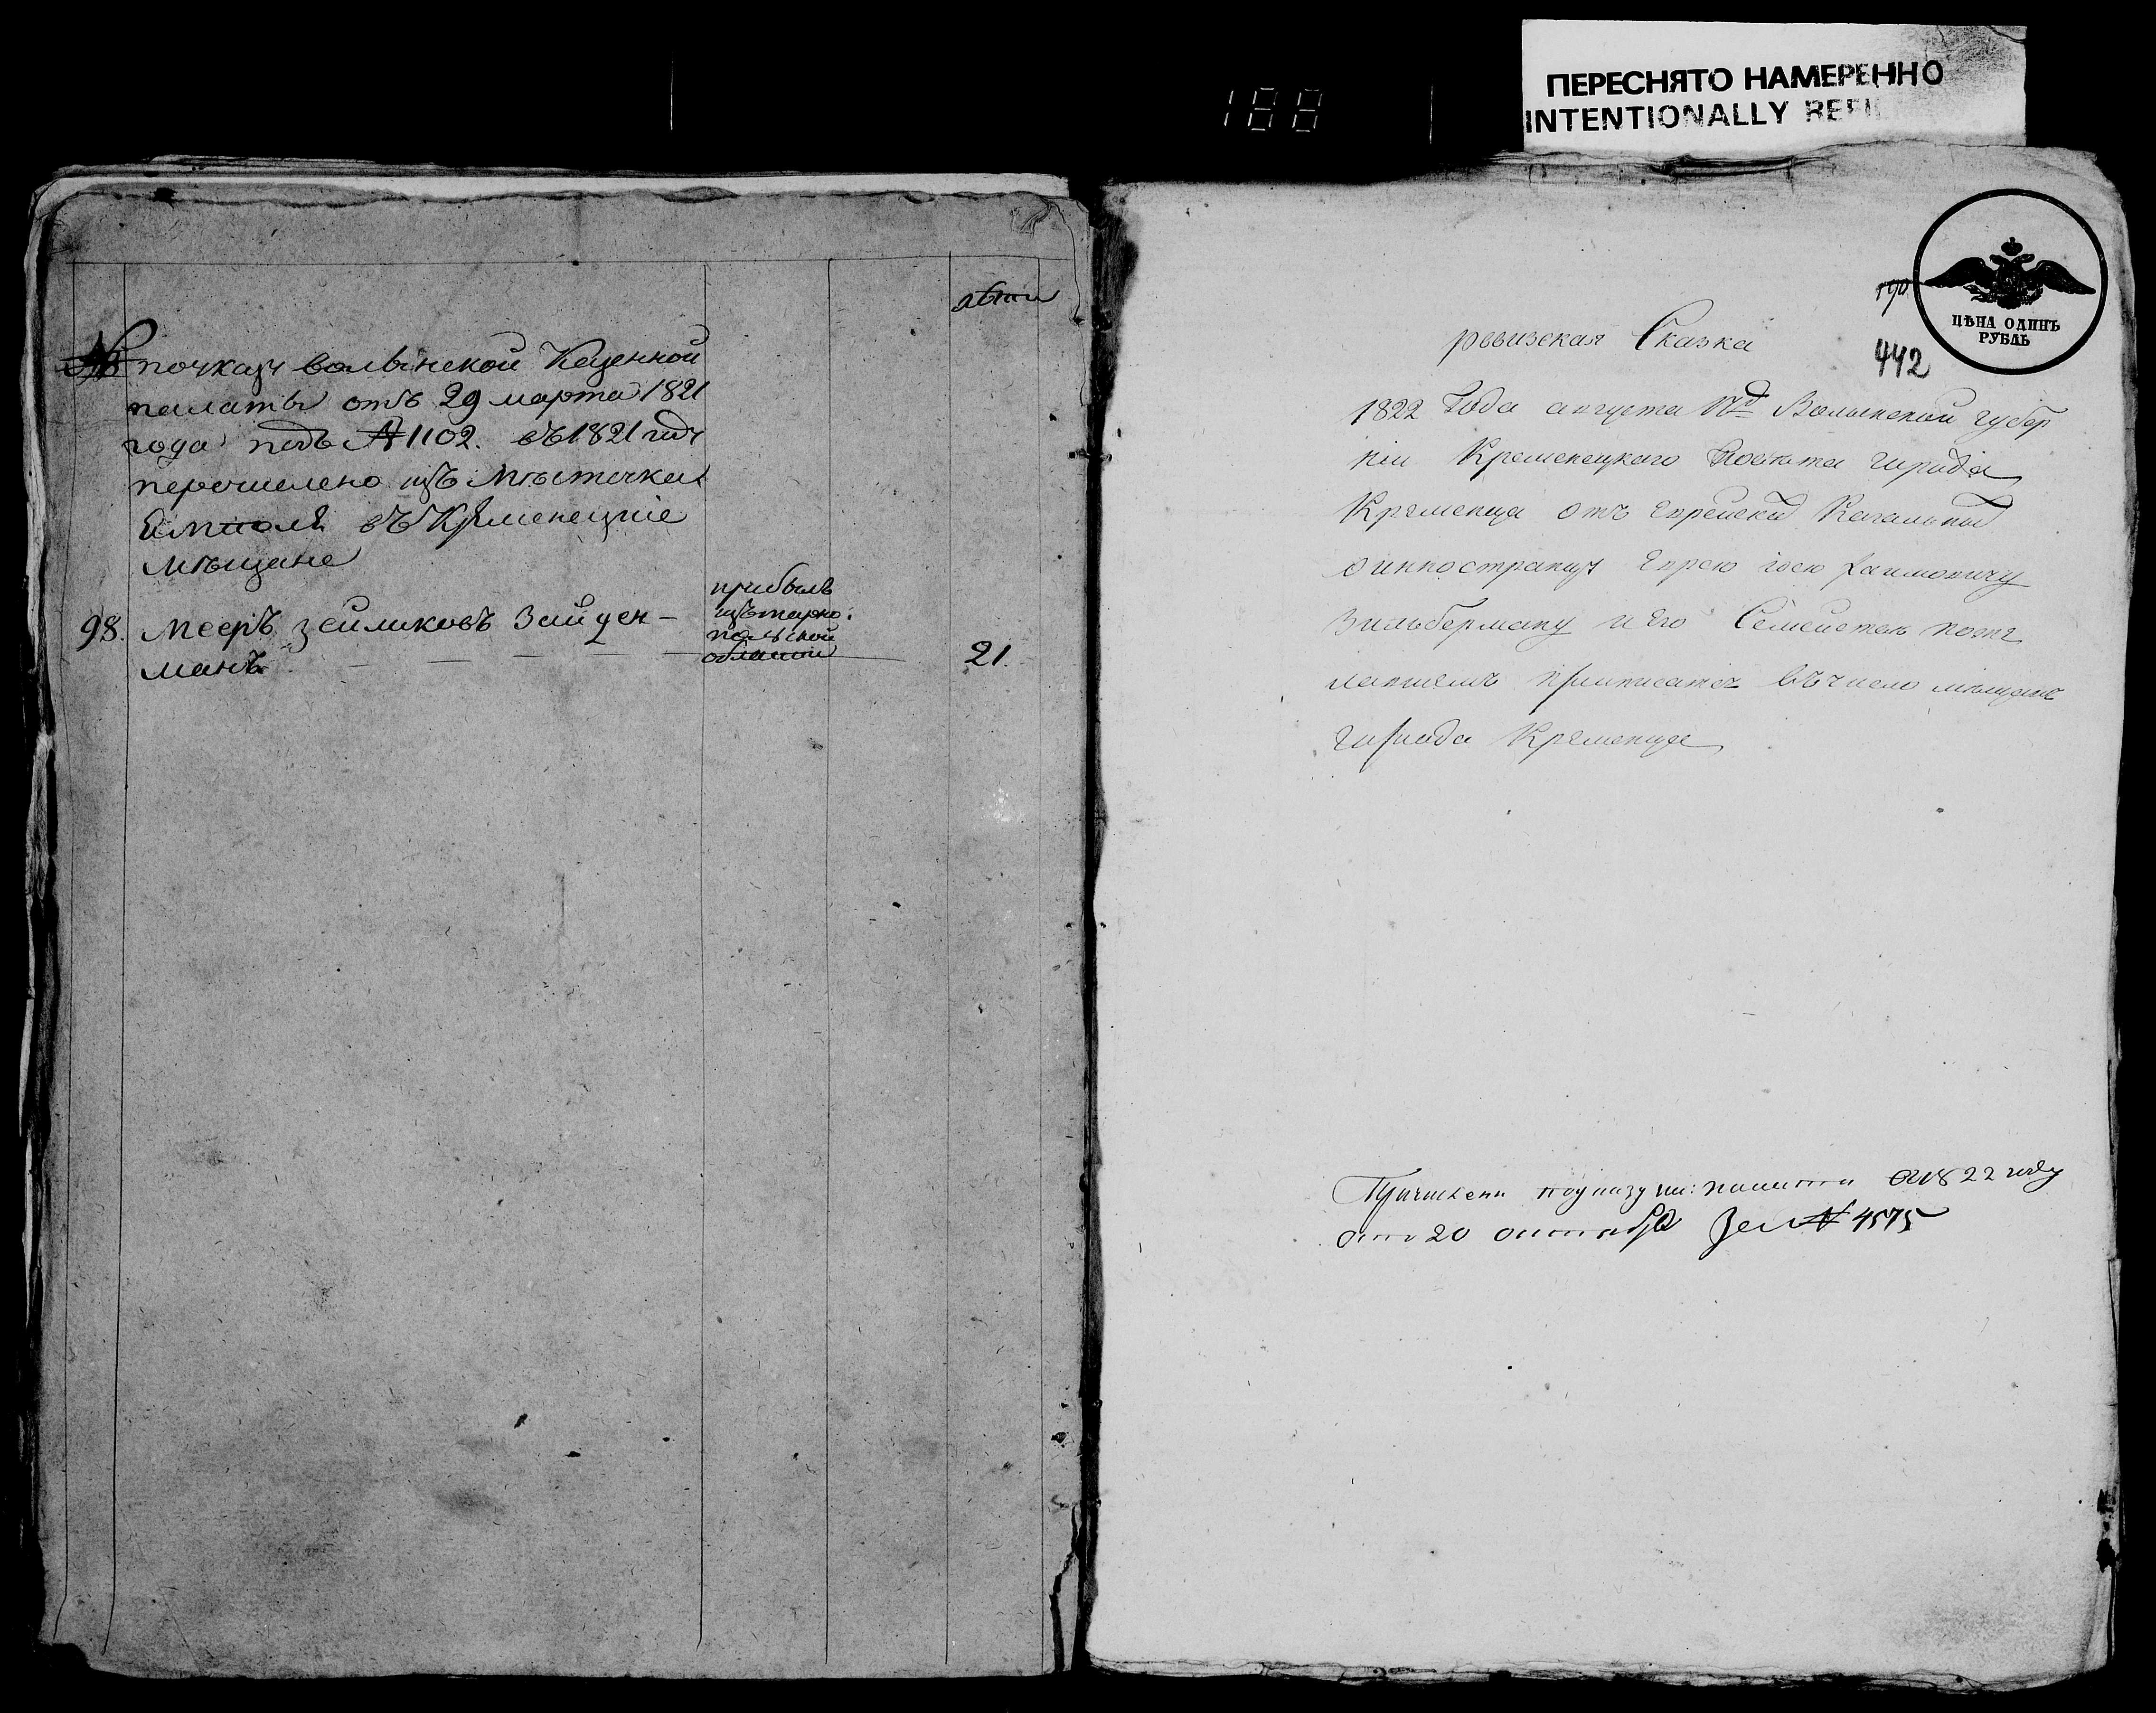 188
ПЕРЕСНЯТО НАМЕРЕННО
INTENTIONALLY
лѣта
№
поуказу волынской Казенной
палаты отъ 29 марта 1821
года подъ №1102. въ1821 году
перечислено изъ Мѣстечка
Ямполя въ Кременецкіе
мѣщане
98. Мееръ Зейликовъ Зайден-
манъ
прибылъ
изъ тарно:
польской
области
21.
190
ЦѢНА ОДИНЪ
РУБЛЬ
442
ревизская Сказка
1822 Года августа Волынской губер
ніи Кременецкаго Повѣта города
Кременца отъ Еврейскаго Кагальна
о иностранцу Еврею Хаимовичу
Зильберману и Его Семействѣ
въ число мѣщанъ
города Кременца
Причислены поуказу палаты 1822 году
отъ 20 октября За № 4575